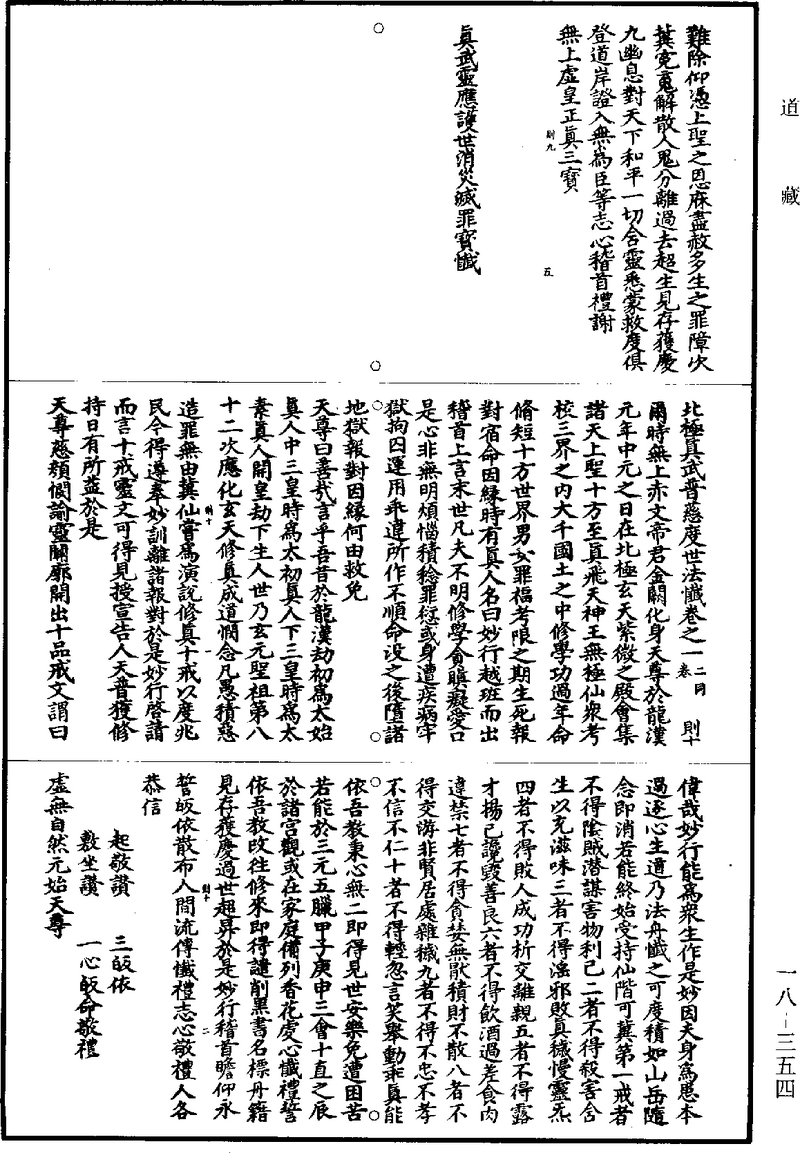 道藏
難除仰憑上聖之恩庥盡赦多生之罪障次
冀寃䰟解散人鬼分離過去超生見存獲慶
九幽息對天下和平一切含靈悉蒙救度俱
登道岸證入無爲臣等志心稽首禮謝
無上虛皇正真三寶
尉九 五
真武靈應護世消災滅罪寶懺
北極真武普慈度世法懺卷之一 二同卷 則十
爾時無上赤文帝君金闕化身天尊於龍漢
元年中元之日在北極玄天紫微之殿會集
諸天上聖十方至真飛天神王無極仙衆考
校三界之内大千國土之中修學功過年命
脩短十方世界男女罪福考限之期生死報
對宿命因緣時有真人名曰妙行越班而出
稽首上言末世凡夫不明修學貪瞋癡愛口
是心非無明煩惱積稔罪愆或身遭疾病牢
獄拘囚運用乖違所作不順命没之後墮諸
地獄報對因緣何由救免
天尊曰善哉言乎吾昔於龍漢劫初爲太始
真人中三皇時爲太初真人下三皇時爲太
素真人開皇劫下生人世乃玄元聖祖第八
十二次應化玄天修真成道憫念凡愚積惡
尉十 一
造罪無由冀仙嘗爲演説修真十戒以度兆
民令得遵奉妙訓離諸報對於是妙行啓請
而言十戒靈文可得見授宣告人天普獲修
持日有所益於是
天尊慈顔憫諭靈關廓開出十品戒文謂曰
偉哉妙行能爲衆生作是妙因夫身爲患本
過逐心生適乃法舟懺之可度積如山岳隨
念即消若能終始受持仙階可冀第一戒者
不得陰賊潜謀害物利己二者不得殺害含
生以充滋味三者不得滛邪敗真穢慢靈炁
四者不得敗人成功析交離親五者不得露
才揚己譏毁善良六者不得飲酒過差食肉
違禁七者不得貪婪無猒積財不散八者不
得交游非賢居處雜穢九者不得不忠不孝
不信不仁十者不得輕忽言笑舉動乖真能
依吾教秉心無二即得見世安樂免遭困苦
若能於三元五臘甲子庚申三會十直之辰
於諸宫觀或在家庭備列香花虔心懺禮誓
依吾教改往修來即得譴削黑書名標丹籍
見存獲慶過世超昇於是妙行稽首瞻仰永
尉十 二
誓皈依散布人間流傳懺禮志心敬禮人各
恭信
起敬讚 三皈依
敷坐讚 一心皈命敬禮
虛無自然元始天尊
一八-三五四